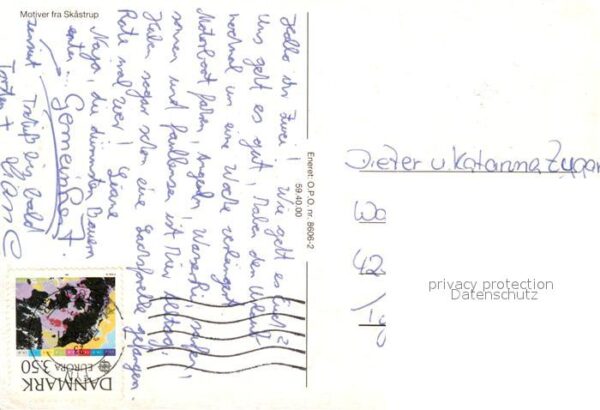 Motiver fra Skåstrup
Hallo ihr Zwei! Wie geht es Euch?
Uns geht es gut, haben den Urlaub
nochmal um eine Woche verlängert.
Motorboot fahren, Angeln, Wasserski, surfen,
sonnen und faulenzen ist hier
Haben sogar schon eine gefangen.
Rate mal wer! Liane
Naja, die dümmsten Bauern
ernten... Gemeinheit.
Tschüß bis bald
Torsten +
Liane
Eneret: D.P.O. nr. 8606-2
59.40.00
Dieter u. Katarina
42
privacy protection
Datenschutz
DANMARK
EUROPA 3.50